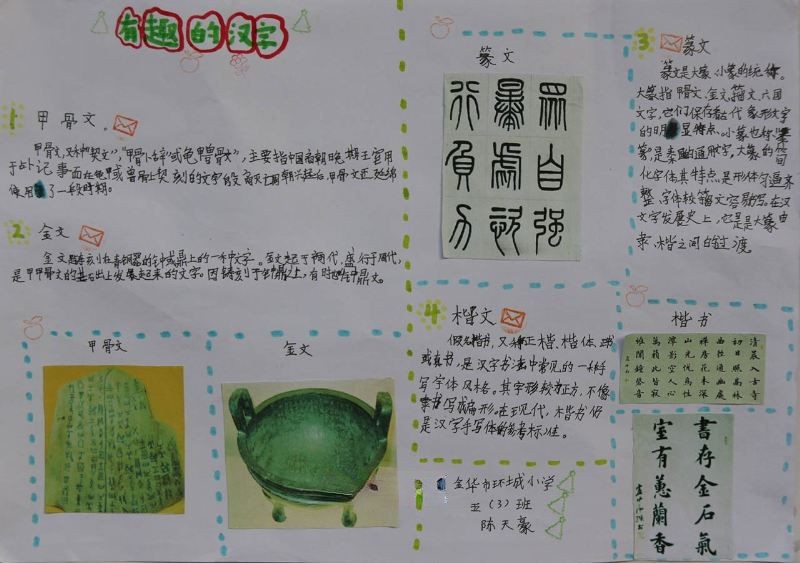 有趣的汉字
1 甲骨文。
甲骨文,又称"契文","甲骨卜辞"或"龟甲兽骨文",主要指中国商朝晚期王室用
于占卜记事而在龟甲或兽骨上契刻的文字
使用了一段时期。
2 金文
金文是铸刻在青铜器的钟或鼎上的一种文字。金文起于商代,盛行于周代,
是甲骨文的基础上发展起来的文字。因铸刻于钟鼎上,有时也称钟鼎文。
甲骨文
金文
篆文
行墨众
负处自
力弱强
3 篆文
篆文是大篆、小篆的统称。
大篆指甲骨文、金文、籀文、六国
文字,它们保存着古代象形文字
的明显特点。小篆也称"秦
篆",是秦国的通用文字,大篆的简
化字体,其特点是形体匀逼齐
整、字体较籀文容易书写。在汉
文字发展史上,它是大篆由
隶、楷之间的过渡
4 楷文
又称正楷、楷体、
或真书,是汉字书法中常见的一种手
写字体风格。其字形较为正方,不像
隶书写成扁形。在现代,楷书仍
是汉字手写体的参考标准。
楷书
清晨入古寺
初日照高林
曲径通幽处
禅房花木深
山光悦鸟性
潭影空人心
万籁此皆寂
惟闻钟磬音
書存金石氣
室有蕙蘭香
金华市环城小学
五(3)班
陈天豪